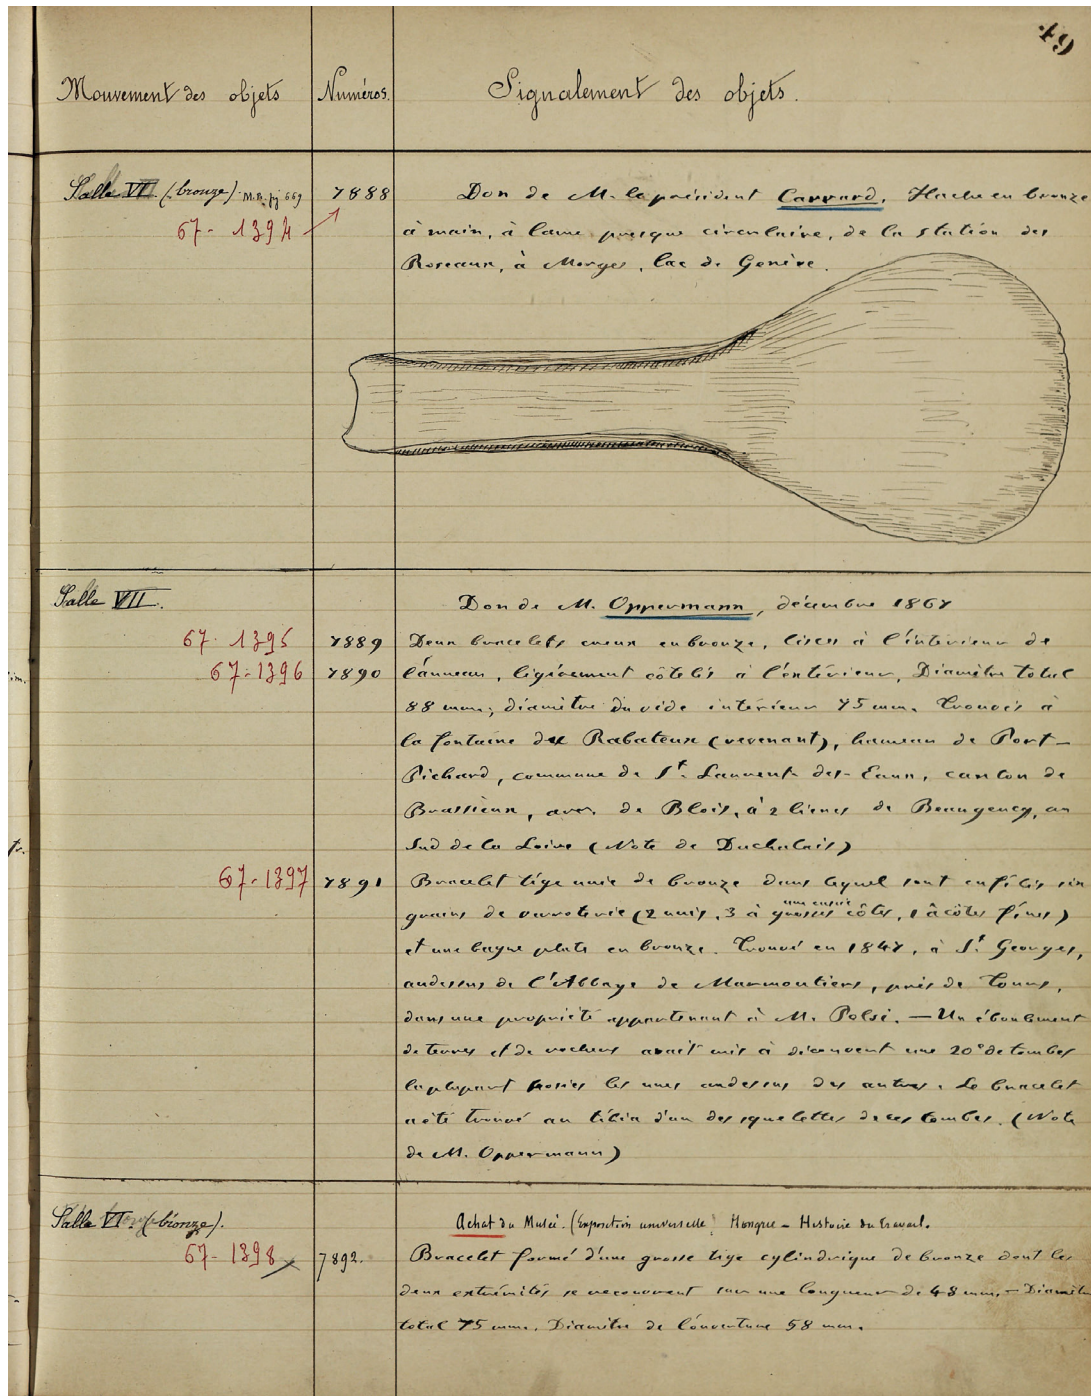 49
Mouvement des objets Numéros. Signalement des objets.
Salle VI (bronze). M.R. pg 669 7888 Don de M. le président Carrard. Hache en bronze
67-1394 à main, à lame presque circulaire, de la station des
Roseaux, à Morges, lac de Genève.
Salle VII. Don de M. Oppermann, décembre 1867
67-1395 7889 Deux bracelets creux en bronze, lisses à l'intérieur de
67-1396 7890 l'anneau, légèrement côtelés à l'extérieur, Diamètre total
88 mm; diamètre du vide intérieur 75 mm. Trouvés à
la fontaine du Rabateux (revenant), hameau de Port-
Pichard, commune de St. Laurent-des-Eaux, canton de
Brassieux, arr. de Blois, à 2 lieues de Beaugency, au
Sud de la Loire (Note de Duchalais)
67-1397 7891 Bracelet tige unie de bronze dans lequel sont enfilés six
grains de verroterie (2 unis, 3 à grosses côtes, 1 à côtes fines)
et une bague plate en bronze. Trouvé en 1847, à St Georges,
audessus de l'Abbaye de Marmoutiers, près de Tours,
dans une propriété appartenant à M. Polsé. — Un éboulement
de terres et de rochers avait mis à découvert une 20e de tombes
la plupart posées les unes audessus des autres. Le bracelet
a été trouvé au tibia d'un des squelettes de ces tombes. (Note
de M. Oppermann)
Salle VI. (bronze). Achat du Musée. (Exposition universelle: Hongrie - Histoire du Travail.
67-1398 7892. Bracelet formé d'une grosse tige cylindrique de bronze dont les
deux extrémités se recouvrent sur une longueur de 48 mm. - Diamètre
total 75 mm. Diamètre de l'ouverture 58 mm.